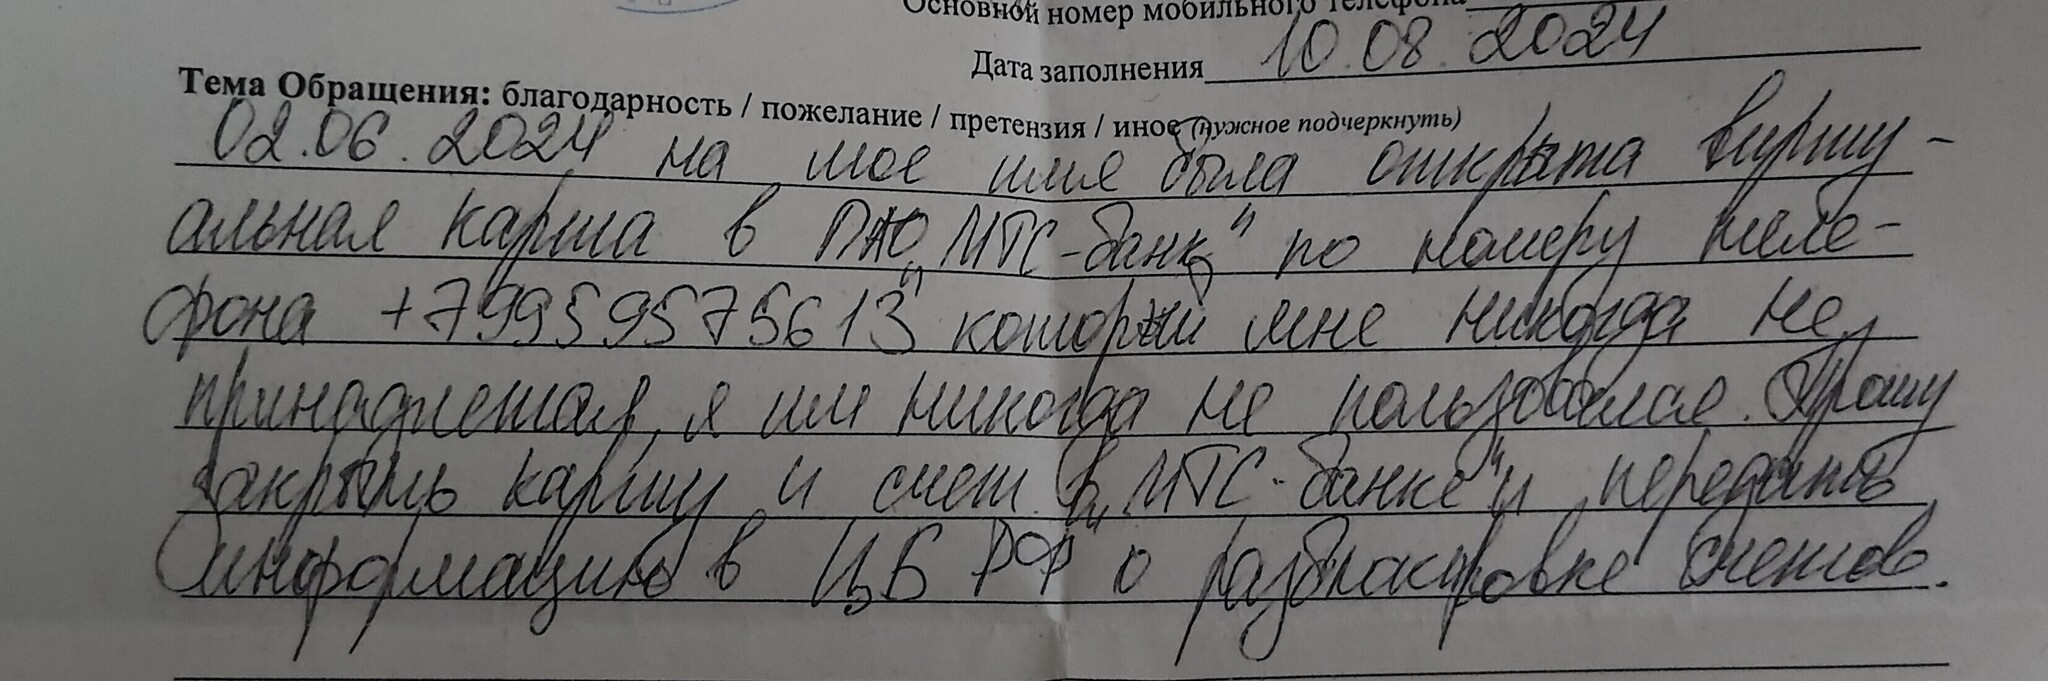 Основной номер мобильного телефона
Дата заполнения 10.08.2024
Тема Обращения: благодарность / пожелание / претензия / иное (нужное подчеркнуть)
02.06.2024 на мое имя была открыта вирту-
альная карта в ПАО „МТС-банк" по номеру теле-
фона +79959575613 который мне никогда не
принадлежал, я им никогда не пользовалась. Прошу
закрыть карту и счет в „МТС-банке" и передать
информацию в ЦБ РФ о разблокировке счетов.